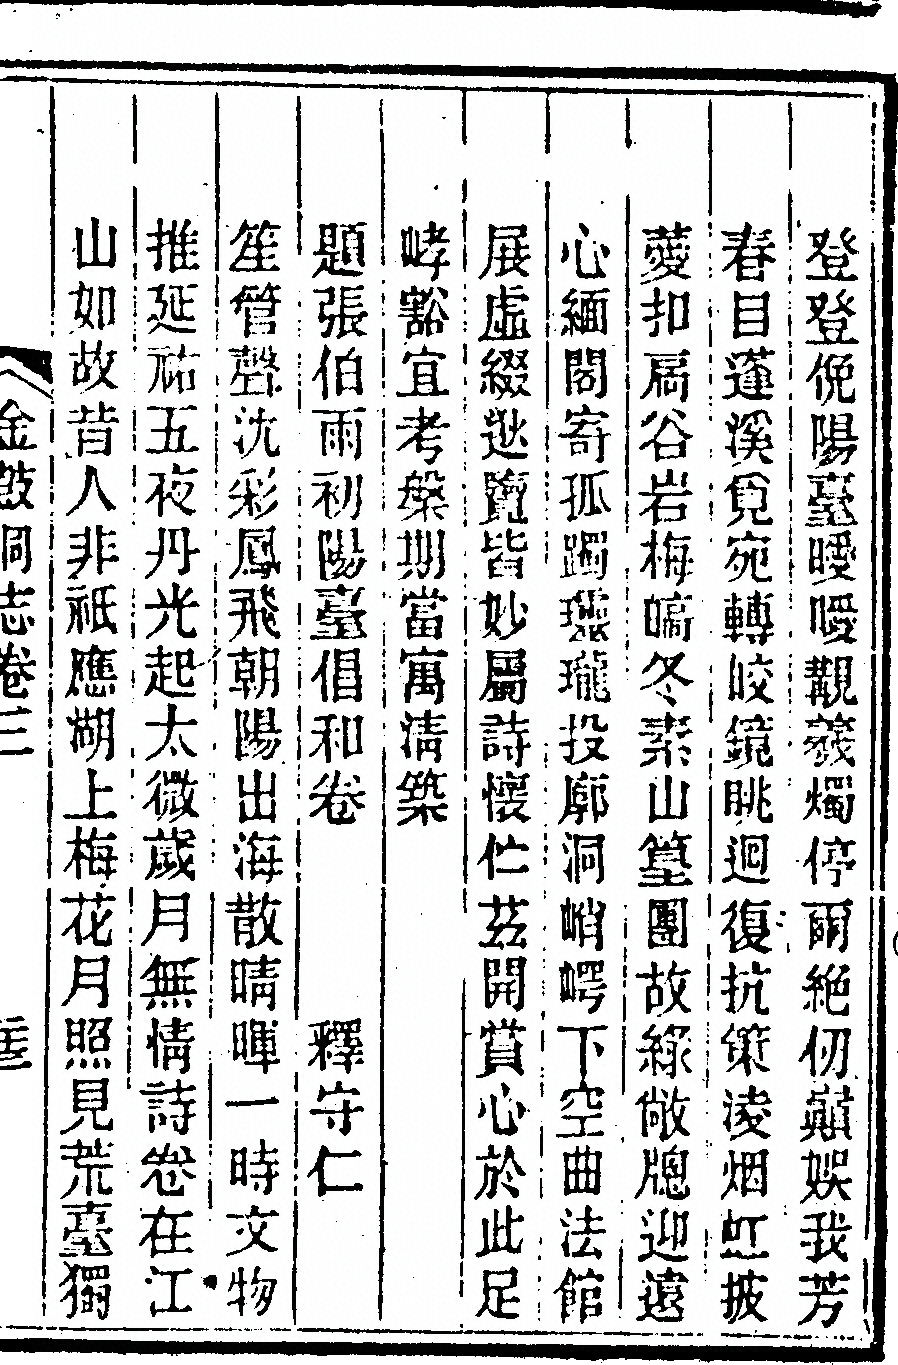 登登俛陽臺曖曖覯羲燭停雨絶仞巔娛我芳
春目蓬溪覓宛轉皎鏡眺迴復抗策凌烟虹披
薆扣扃谷岩梅皜冬素山篁團故綠敞牕迎遠
心緬閣寄孤躅瓏投廓洞峭崿下空曲法館
展虛綴逖覽皆妙屬詩懷伫茲開賞心於此足
㟏豁宜考槃期當寓清築
題張伯雨初陽臺倡和卷　釋守仁
笙管聲沈彩鳳飛朝陽出海散晴暉一時文物
推延祐五夜丹光起太微歲月無情詩卷在江
山如故昔人非祇應湖上梅花月照見荒臺獨
金鼓洞志卷三